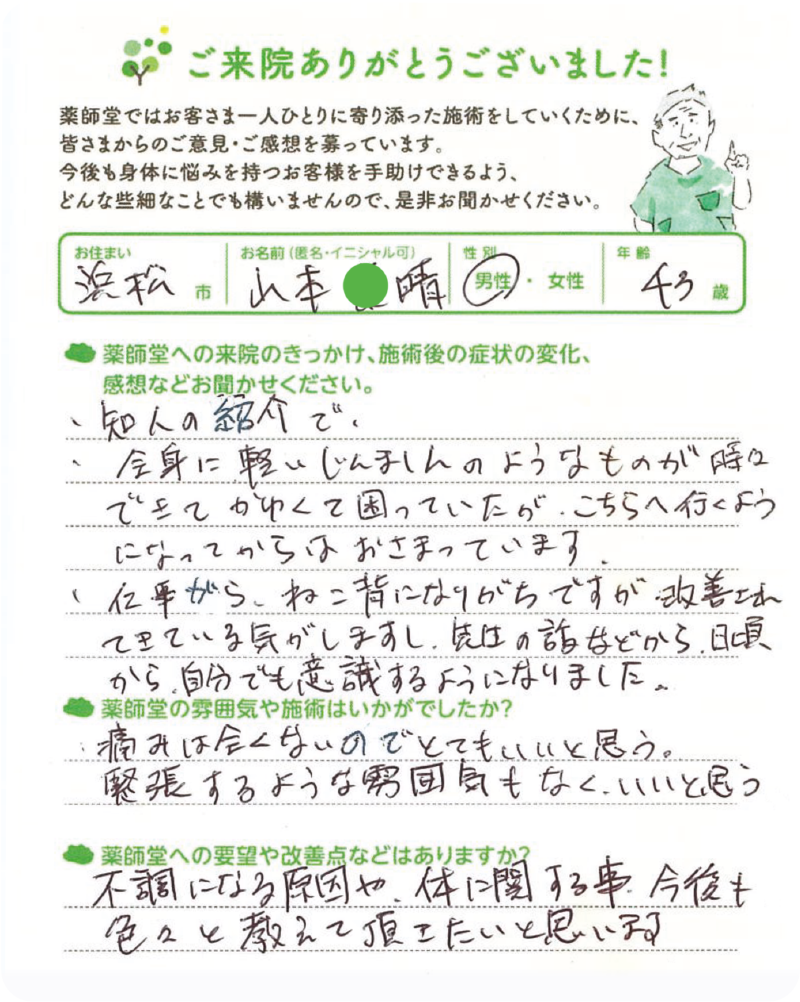 ご来院ありがとうございました!
薬師堂ではお客さま一人ひとりに寄り添った施術をしていくために、
皆さまからのご意見・ご感想を募っています。
今後も身体に悩みを持つお客様を手助けできるよう、
どんな些細なことでも構いませんので、是非お聞かせください。
お住まい お名前(匿名・イニシャル可) 性別 年齢
浜松 市 山本 晴 男性・女性 43 歳
薬師堂への来院のきっかけ、施術後の症状の変化、
感想などお聞かせください。
、知人の紹介で、
・全身に軽いじんましんのようなものが時々
できてかゆくて困っていたが、こちらへ行くよう
になってからはおさまっています。
、仕事がら、ねこ背になりがちですが、改善され
てきている気がしますし、先生の話などから、日頃
から、自分でも意識するようになりました。
薬師堂の雰囲気や施術はいかがでしたか?
・痛みは全くないのでとてもいいと思う。
緊張するような雰囲気もなく、いいと思う
薬師堂への要望や改善点などはありますか?
不調になる原因や、体に関する事、今後も
色々と教えて頂きたいと思います